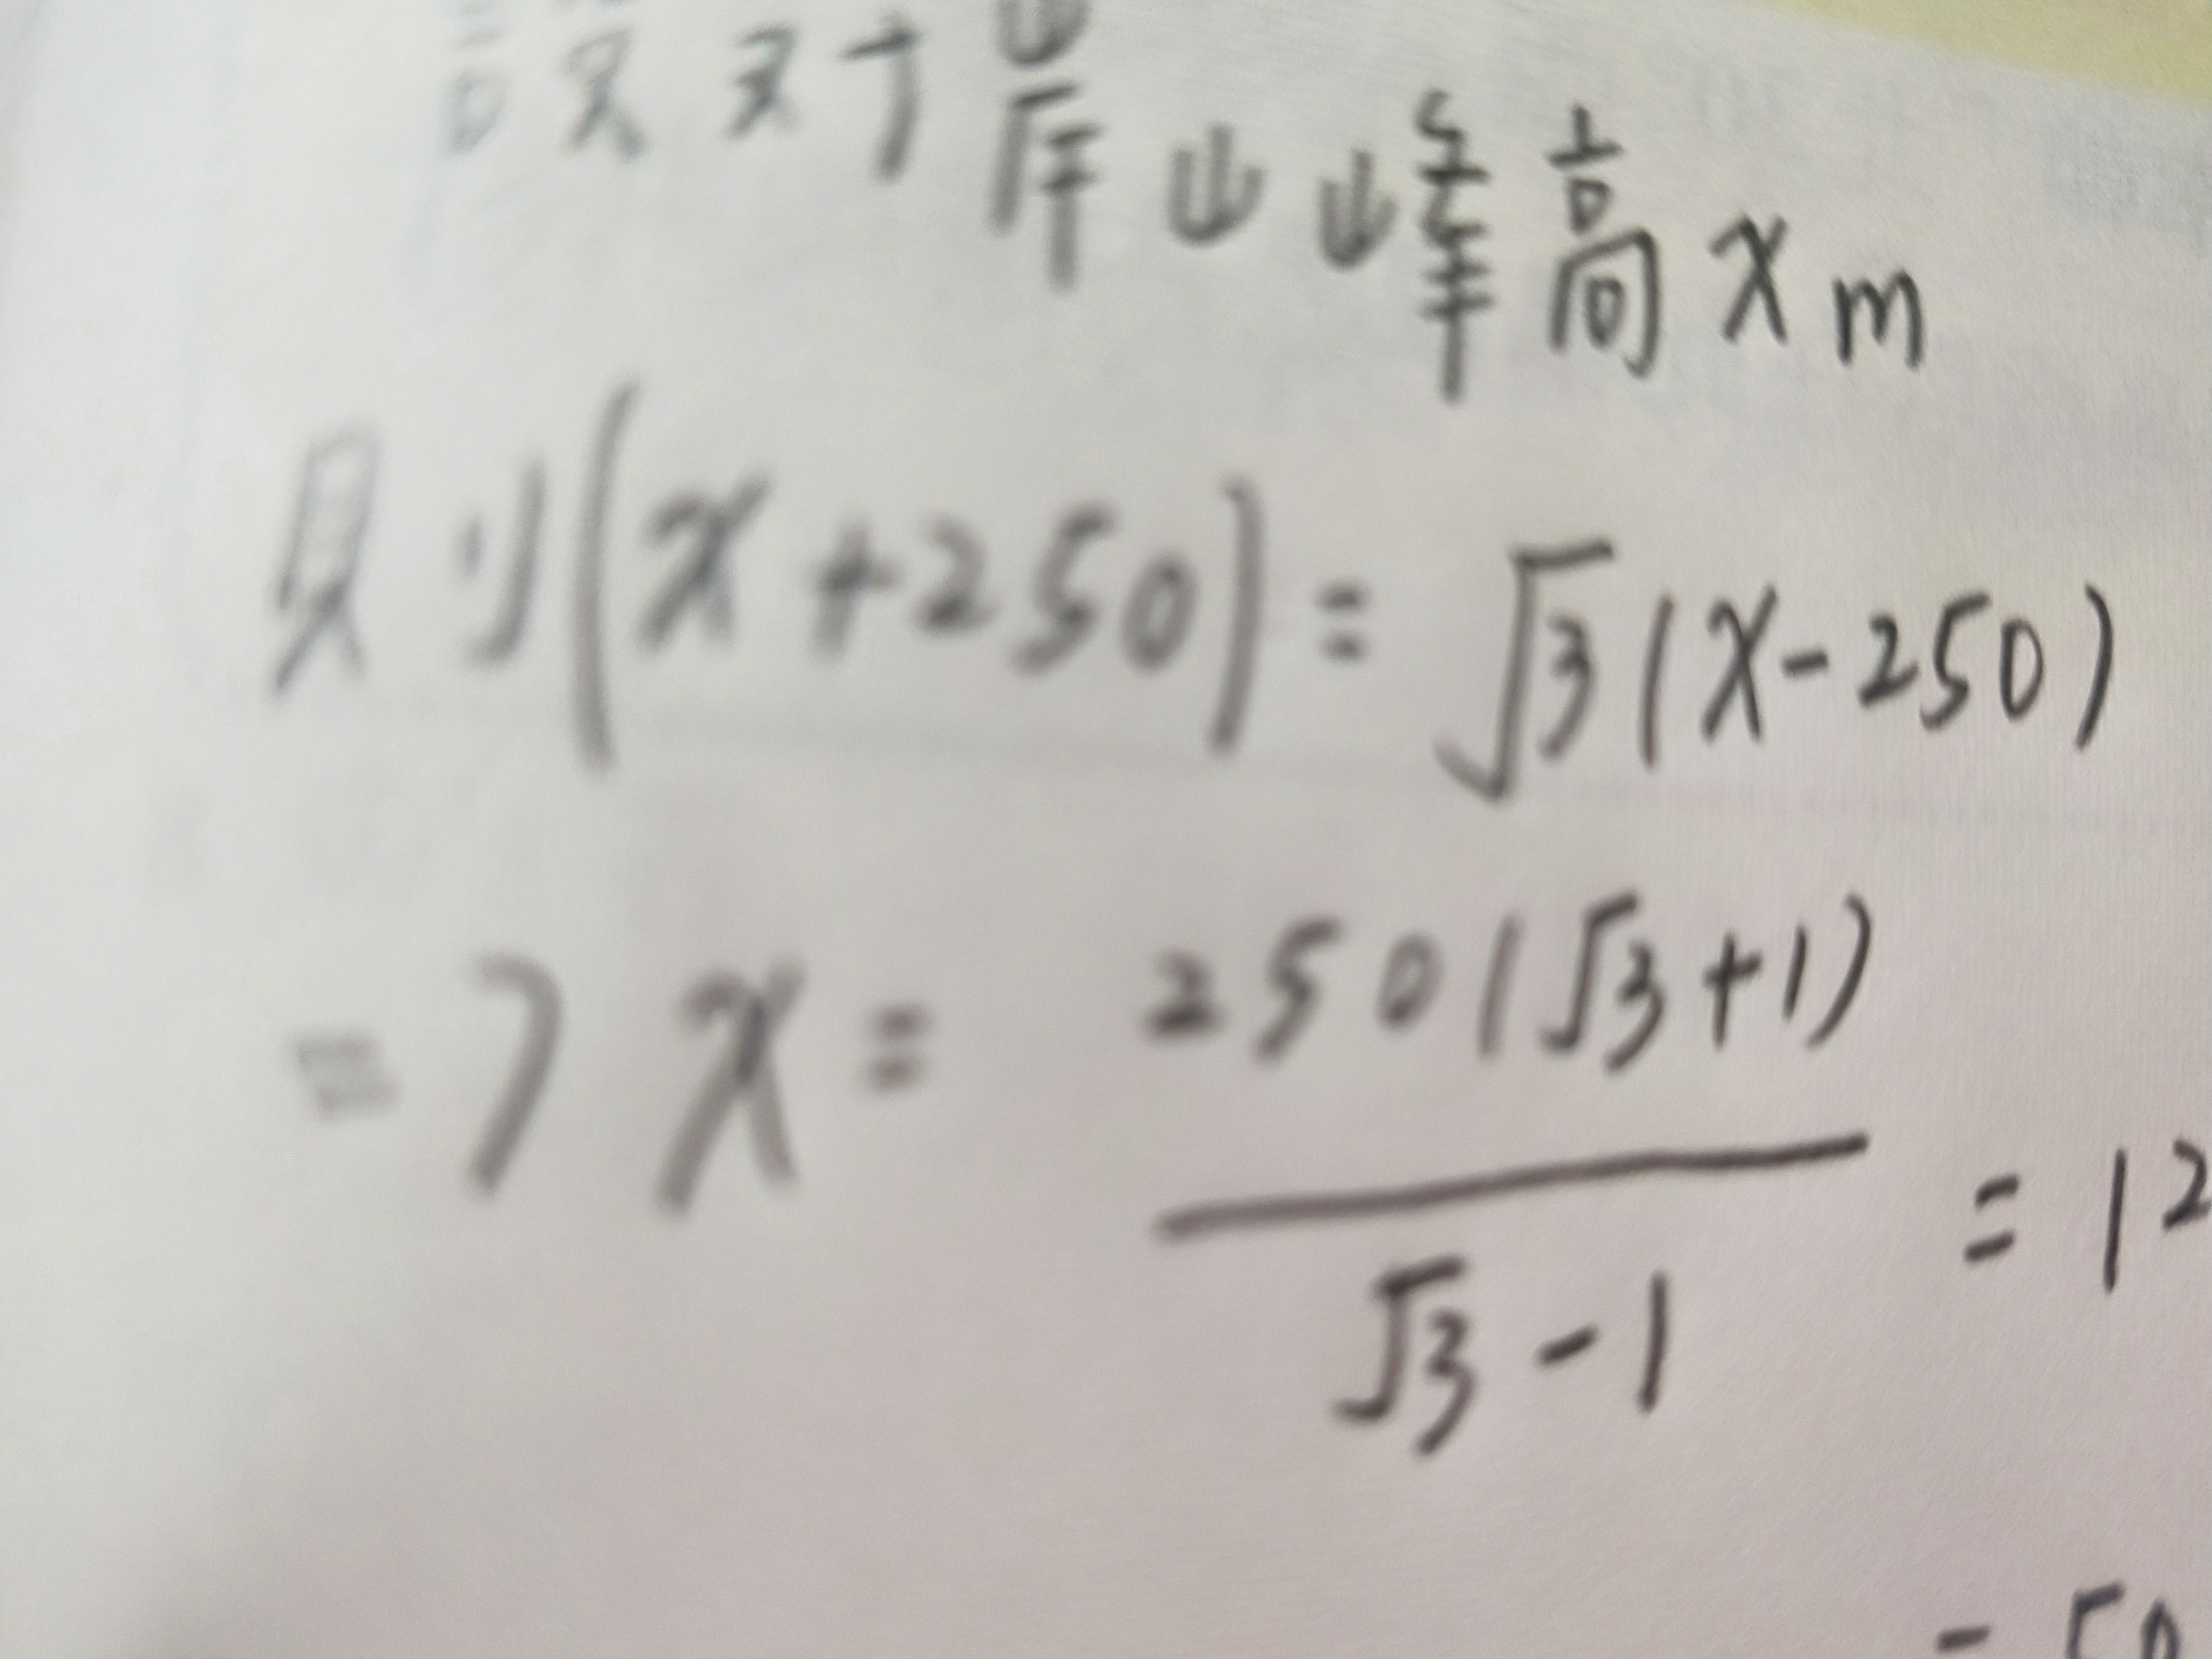 设对岸山峰高 x m
则(x+250)=√3(x-250)
=> x= 250(√3+1)
√3-1
= 12
= 50